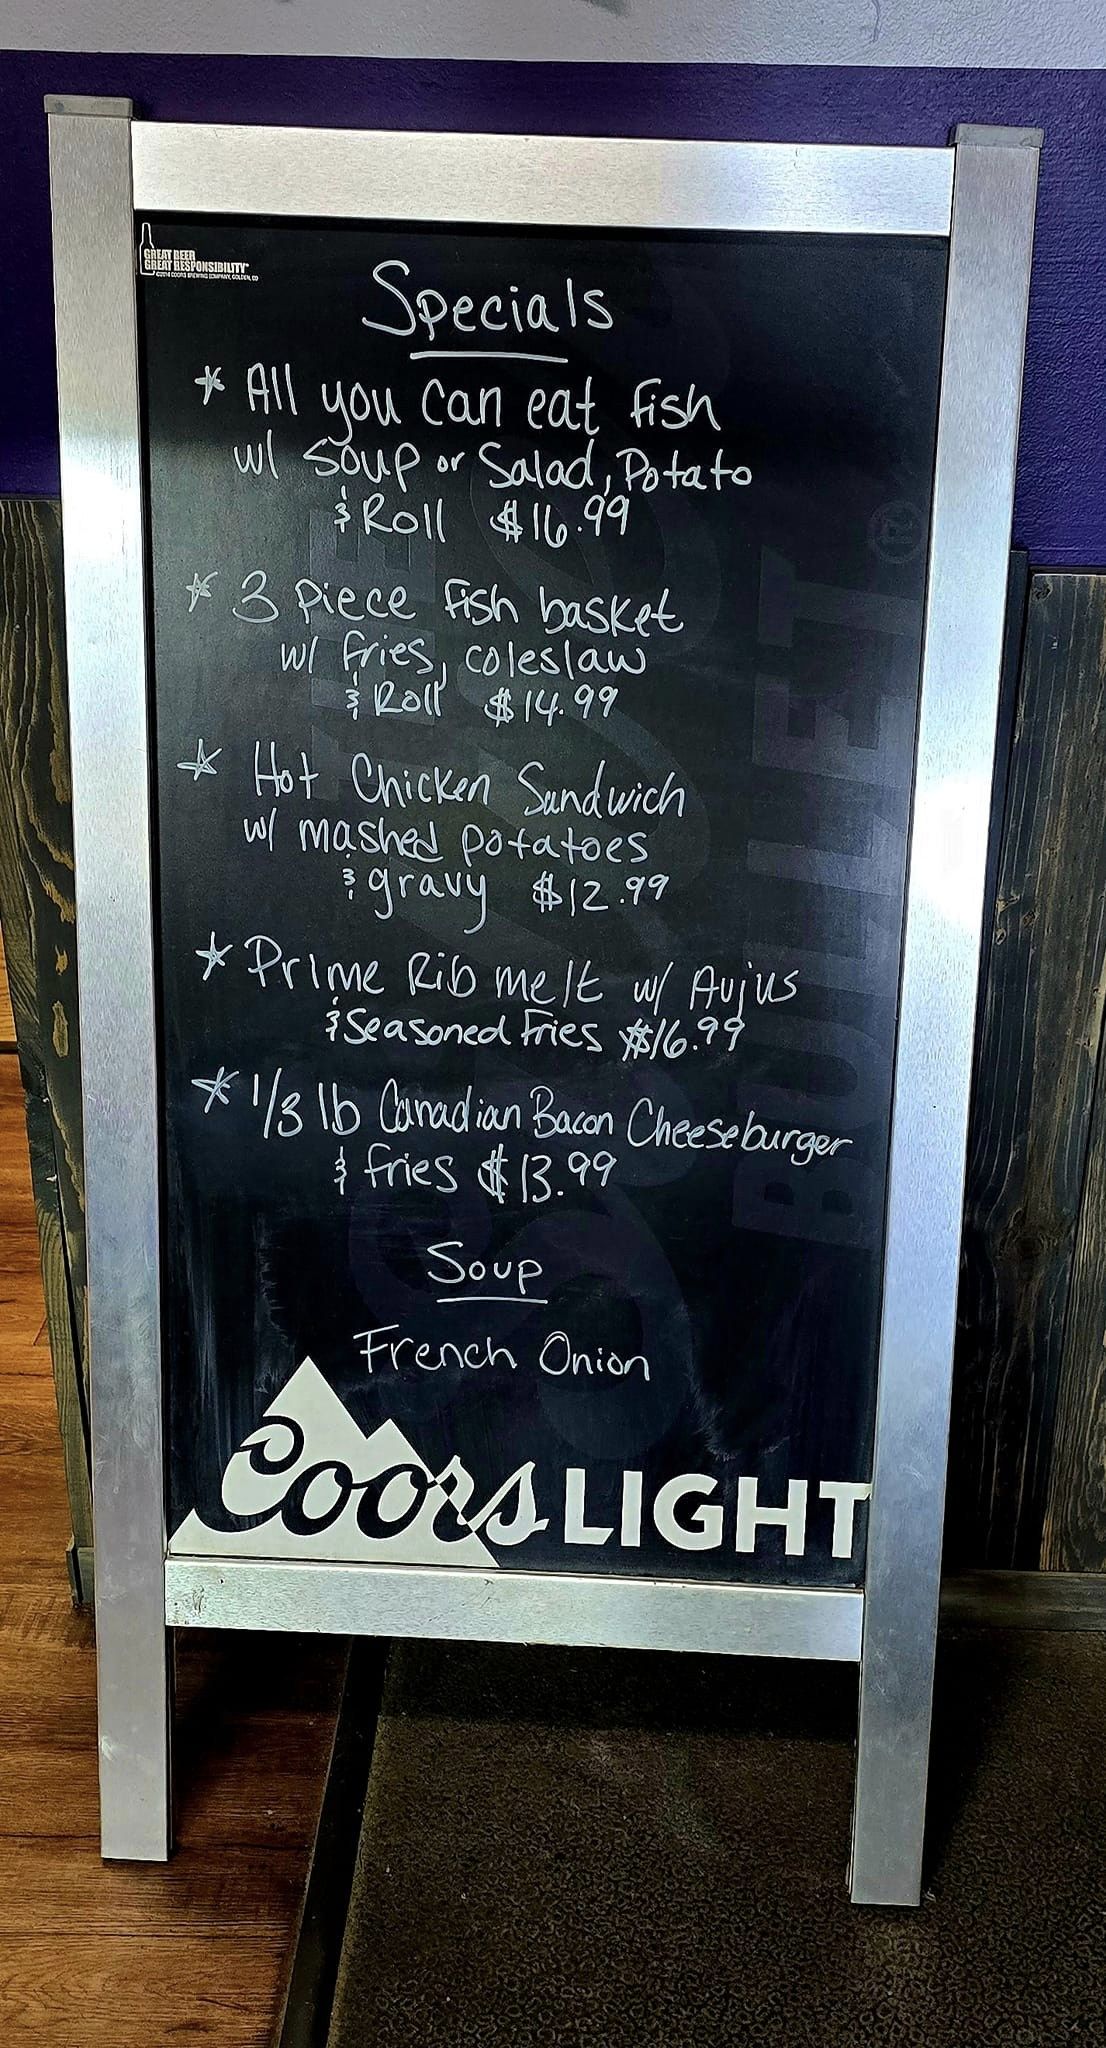 GREAT BEER
GREAT RESPONSIBILITY
COORS BREWING COMPANY, GOLDEN, CO
Specials
* All you can eat fish
w/ Soup or Salad, Potato
& Roll $16.99
* 3 Piece fish basket
w/ fries, coleslaw
& Roll $14.99
* Hot Chicken Sandwich
w/ mashed potatoes
& gravy $12.99
* Prime Rib melt w/ Aujus
& Seasoned Fries $16.99
* 1/3 lb Canadian Bacon Cheeseburger
& fries $13.99
Soup
French Onion
Coors LIGHT
BULLET